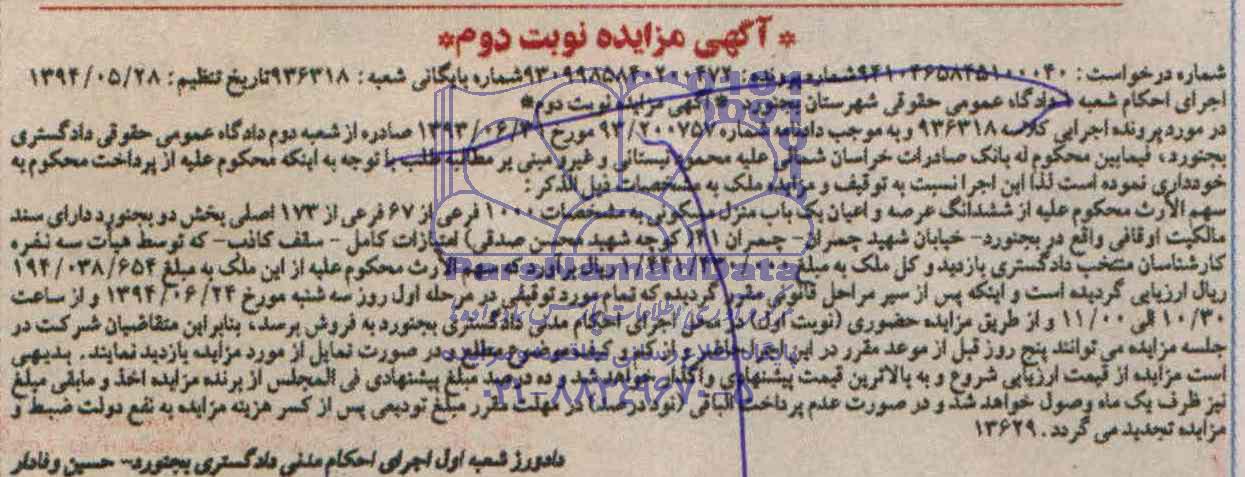 * آگهی مزایده نوبت دوم *
شماره درخواست : ۹۴۱۰۴۶۵۸۴۵۱۰۰۰۴۰ شماره پرونده: ۹۳۰۹۹۸۵۸۴۰۲۰۰۴۷۲ شماره بایگانی شعبه : ۹۳۶۳۱۸ تاریخ تنظیم : ۱۳۹۴/۰۵/۲۸
اجرای احکام شعبه دادگاه عمومی حقوقی شهرستان بجنورد * آگهی مزایده نوبت دوم *
در مورد پرونده اجرایی کلاسه ۹۳۶۳۱۸ و به موجب دادنامه شماره مورخ صادره از شعبه دوم دادگاه عمومی حقوقی دادگستری
بجنورد ، فیمابین محکوم له بانک صادرات خراسان شمالی علیه محمود بستانی و غیره مبنی بر مطالبه طلب با توجه به اینکه محکوم علیه از پرداخت محکوم به
خودداری نموده است لذا این اجرا نسبت به توقیف و مزایده ملک به مشخصات ذیل الذکر :
سهم الارث محکوم علیه از ششدانگ عرصه و اعیان یک باب منزل مسکونی به مشخصات ۱۰۰۰ فرعی از ۶۷ فرعی از ۱۷۳ اصلی بخش دو بجنورد دارای سند
مالکیت اوقافی واقع در بجنورد- خیابان شهید چمران- چمران ( کوچه شهید محسن صدقی) امتیازات کامل - سقف کاذب- که توسط هیأت سه نفره
کارشناسان منتخب دادگستری بازدید و کل ملک به مبلغ ریال برآورد که سهم الارث محکوم علیه از این ملک به مبلغ ۱۹۴/۰۳۸/۶۵۴
ریال ارزیابی گردیده است و اینکه پس از سیر مراحل قانونی مقرر گردیده که تمام مورد توقیفی در مرحله اول روز سه شنبه مورخ ۱۳۹۴/۰۶/۲۴ و از ساعت
۱۰/۳۰ الی ۱۱/۰۰ و از طریق مزایده حضوری (نوبت اول) در محل اجرای احکام مدنی دادگستری بجنورد به فروش برسد، بنابراین متقاضیان شرکت در
جلسه مزایده می توانند پنج روز قبل از موعد مقرر در این اجرا حاضر و از کم و کیف موضوع مطلع و در صورت تمایل از مورد مزایده بازدید نمایند . بدیهی
است مزایده از قیمت ارزیابی شروع و به بالاترین قیمت پیشنهادی واگذار خواهد شد و ده درصد مبلغ پیشنهادی فی المجلس از برنده مزایده اخذ و مابقی مبلغ
نیز ظرف یک ماه وصول خواهد شد و در صورت عدم پرداخت الباقی (نود درصد) در مهلت مقرر مبلغ تودیعی پس از کسر هزینه مزایده به نفع دولت ضبط و
مزایده تجدید می گردد . ۱۳۶۲۹
دادورز شعبه اول اجرای احکام مدنی دادگستری بجنورد- حسین وفادار
ParsNamadData